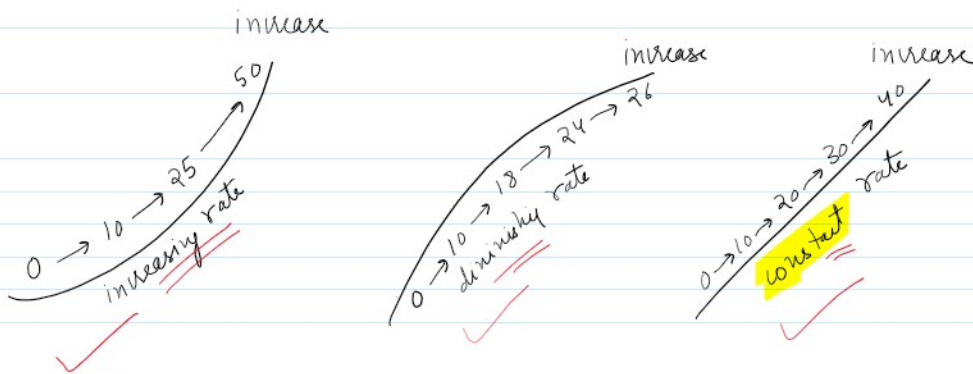 increase
0 → 10 → 25 → 50
increasing rate
increase
0 → 10 → 18 → 24 → 26
diminishy rate
increase
0 → 10 → 20 → 30 → 40
constant rate